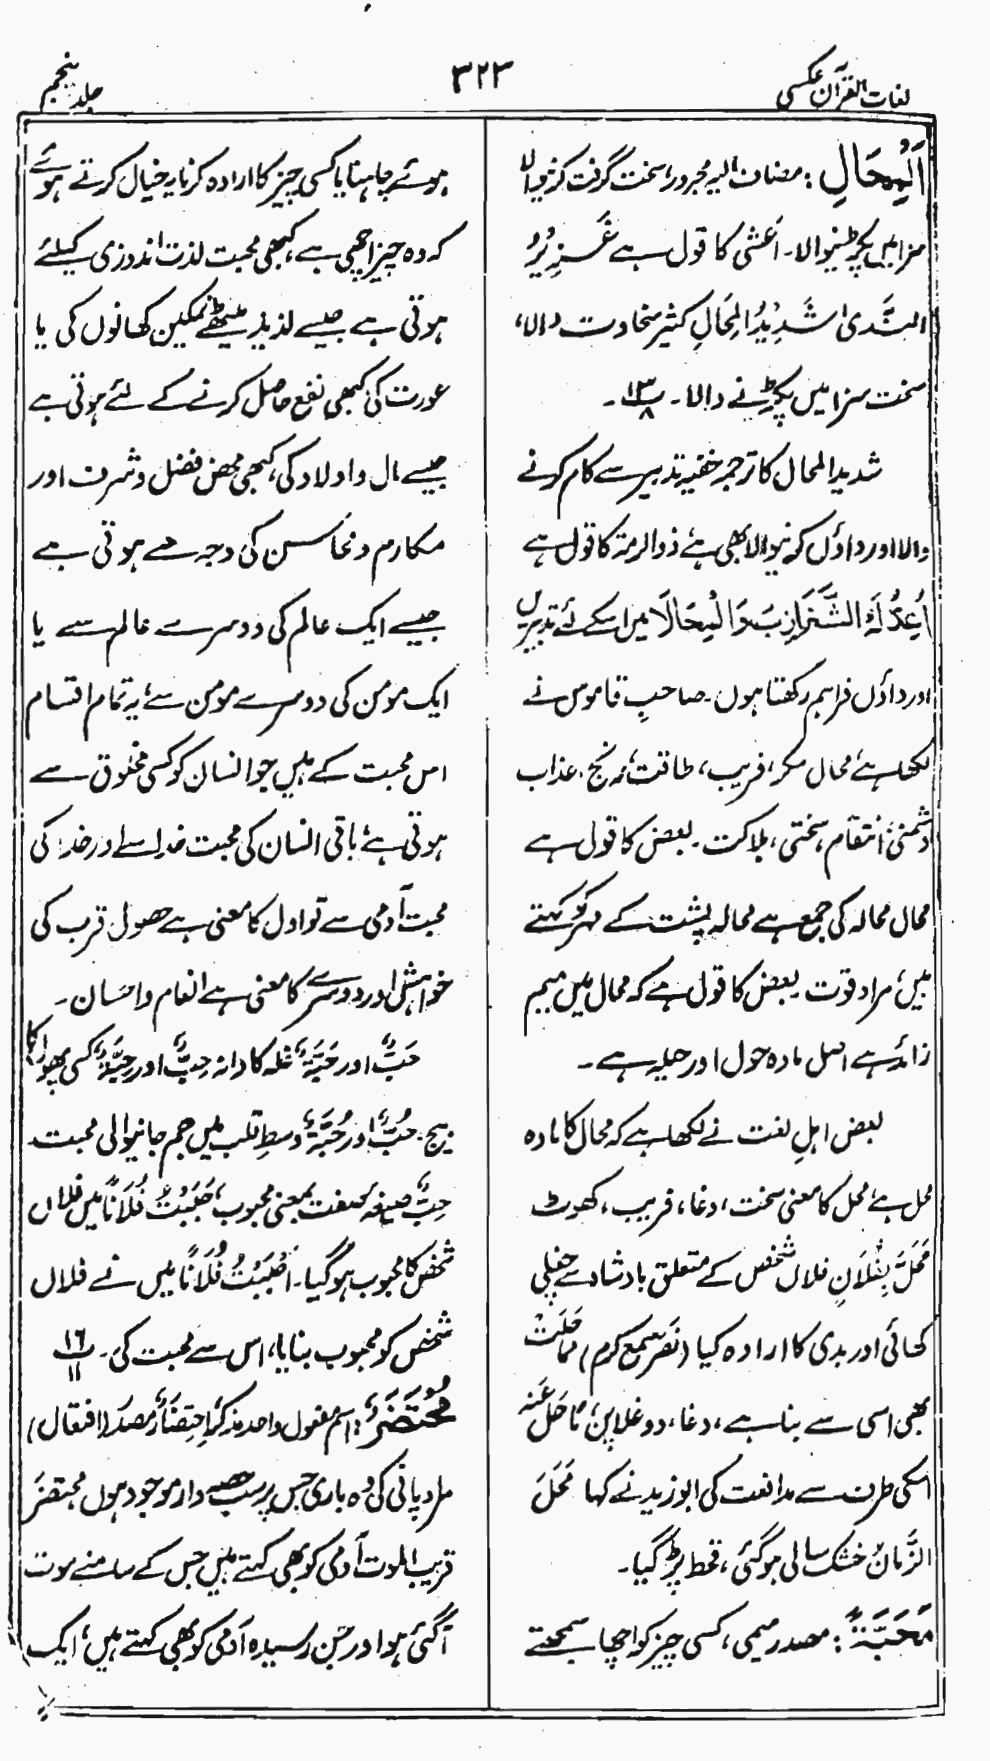 لغات القرآن عکسی
۳۲۳
جلد پنجم
اَلْمِحَالِ : مضاف الیہ مجرور، سخت گرفت کرنیوالا
سزا میں پکڑنیوالا۔ اَعشٰی کا قول ہے غَزِیْرُ
النَّدیٰ شَدِیْدُ الْمِحَالِ کثیر سخاوت والا،
سخت سزا میں پکڑنے والا۔ ۱۳/۸ ۔
شدید المحال کا ترجمہ خفیہ تدبیر سے کام کرنے
والا اور داؤں کرنیوالا بھی ہے، ذوالرمۃ کا قول ہے
اُعِدُّ لَہُ الشَّغَازِبَ وَالْمِحَالَا میں اسکے لئے تدبیریں
اور داؤں فراہم رکھتا ہوں۔ صاحبِ قاموس نے
لکھا ہے، محال مکر، فریب، طاقت، رنج، عذاب
دشمنی، انتقام، سختی، ہلاکت۔ بعض کا قول ہے
محال محالہ کی جمع ہے محالہ پشت کے مہرہ کو کہتے
ہیں، مراد قوت۔ بعض کا قول ہے کہ محال میں میم
زائد ہے اصل مادہ حول اور حیلہ ہے۔
بعض اہلِ لغت نے لکھا ہے کہ محال کا مادہ
محل ہے، محل کا معنی سخت، دغا، فریب، کھوٹ
مَحَلَ بِفُلَانٍ فلاں شخص کے متعلق بادشاہ سے چغلی
کھائی اور بدی کا ارادہ کیا (نَصَر سَمِعَ کرم) مَاحَلَتْ
بھی اسی سے بنا ہے، دغا، دوغلا پن، مَاحَلَ عَنْہ
اسکی طرف سے مدافعت کی ابوزید نے کہا مَحَلَ
الزَّمَانُ خشک سالی ہوگئی، قحط پڑ گیا۔
مَحَبَّۃً : مصدر میمی، کسی چیز کو اچھا سمجھتے
ہوئے چاہنا یا کسی چیز کا ارادہ کرنا یہ خیال کرتے ہوئے
کہ وہ چیز اچھی ہے، کبھی محبت لذت اندوزی کیلئے
ہوتی ہے جیسے لذیذ میٹھے نمکین کھانوں کی یا
عورت کی کبھی نفع حاصل کرنے کے لئے ہوتی ہے
جیسے مال و اولاد کی، کبھی محض فضل و شرف اور
مکارم و محاسن کی وجہ سے ہوتی ہے
جیسے ایک عالم کی دوسرے عالم سے یا
ایک مومن کی دوسرے مومن سے، یہ تمام اقسام
اس محبت کے ہیں جو انسان کو کسی مخلوق سے
ہوتی ہے، باقی انسان کی محبت خدا سے اور خدا کی
محبت آدمی سے تو اول کا معنی ہے حصول قرب کی
خواہش اور دوسرے کا معنی ہے انعام و احسان۔
حَبٌّ اور حَبَّۃٌ، غلہ کا دانہ حِبٌّ اور حِبَّۃٌ کسی پھول کا
بیج۔ حُبٌّ اور حُبَّۃٌ وسطِ قلب میں جم جانیوالی محبت
حِبٌّ صیغہ صفت بمعنی محبوب، حَبَبْتُ فُلَانًا میں فلاں
شخص کا محبوب ہوگیا۔ اَحْبَبْتُ فُلَانًا میں نے فلاں
شخص کو محبوب بنایا، اس سے محبت کی۔ ۱۶/۱۱
مُحْتَضَرٌ : اسم مفعول واحد مذکر اِحْتِضَارٌ مصدر (افتعال)
مراد پانی کی وہ باری جس پر سب حصے دار موجود ہوں محتضَر
قریب الموت آدمی کو بھی کہتے ہیں جس کے سامنے موت
آگئی ہو اور جن رسیدہ آدمی کو بھی کہتے ہیں، ایک